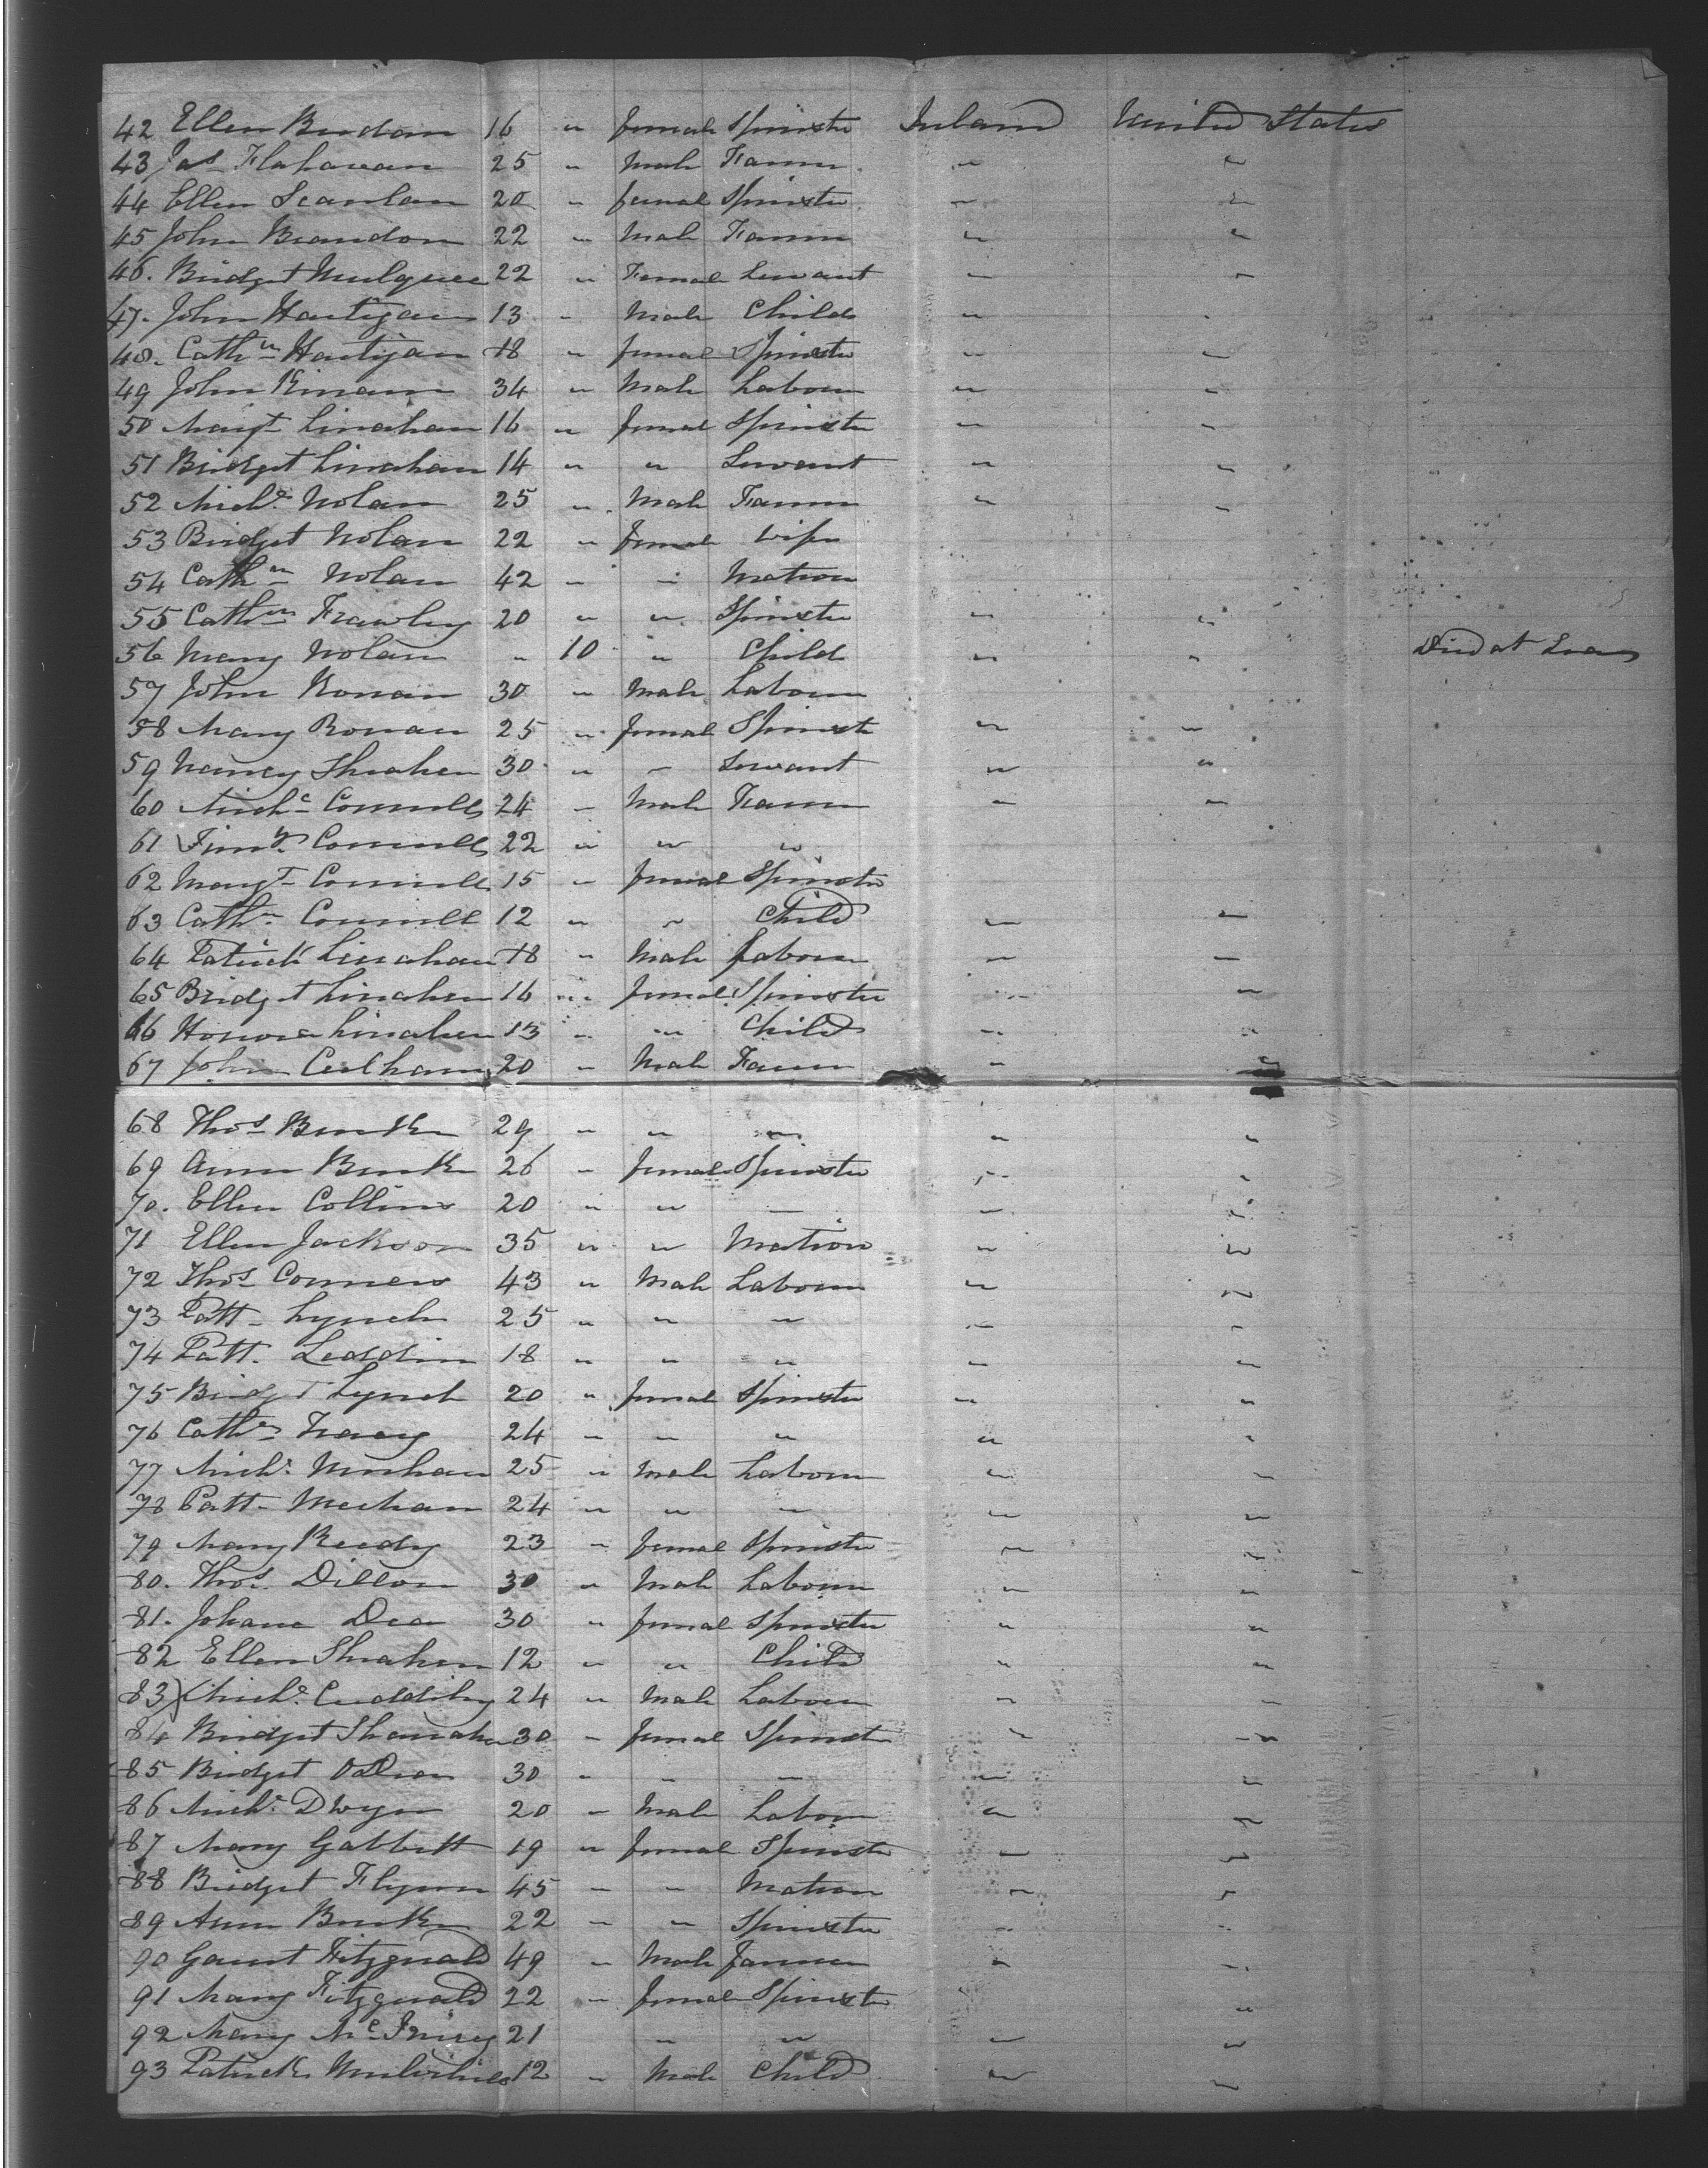 42 Ellen Brudon 16 " female Spinster Ireland United States
43 Jas Flahavan 25 " Male Farmer " "
44 Ellen Scanlan 20 " female Spinster " "
45 John Brandon 22 " Male Farmer " "
46. Bridget Mulquee 22 " Female Servant " "
47. John Hartigan 13 " Male Child " "
48. Cathn Hartigan 18 " female Spinster " "
49 John Kinnan 34 " Male Labour " "
50 Margt Linahan 16 " female Spinster " "
51 Bridget Linahan 14 " " Servant " "
52 Michl Nolan 25 " Male Farmer " "
53 Bridget Nolan 22 " female Wife
54 Cathn Nolan 42 " " Matron
55 Cathn Frawley 20 " " Spinster " "
56 Mary Nolan " 10 " Child " " Died at Sea
57 John Ronan 30 " Male Labour
58 Mary Ronan 25 " female Spinster " "
59 Nancy Sheahen 30 " " Servant " "
60 Michl Connell 24 " Male Farmer " "
61 Timy Connell 22 " " "
62 Margt Connell 15 " female Spinster
63 Cathn Connell 12 " " Child " "
64 Patrick Linahan 18 " Male Labour " "
65 Bridget Linahen 16 " female Spinster " "
66 Honora Linahen 13 " " Child " "
67 John Culhane 20 " Male Farmer " "
68 Thos Burke 29 " " " " "
69 Ann Burke 26 " female Spinster " "
70. Ellen Collins 20 " " " " "
71 Ellen Jackson 35 " " Matron " "
72 Thos Conners 43 " Male Labour " "
73 Patt Lynch 25 " " " " "
74 Patt. Leddin 18 " " " " "
75 Bridgt Lynch 20 " female Spinster " "
76 Cathn Tracy 24 " " " " "
77 Michl Meehan 25 " Male Labour " "
78 Patt Meehan 24 " " " " "
79 Mary Reedy 23 " female Spinster " "
80. Thos Dillon 30 " Male Labour " "
81. Johana Dea 30 " female Spinster " "
82 Ellen Sheahen 12 " " Child " "
83 Michl Cuddihy 24 " Male Labour " "
84 Bridget Shanahan 30 " female Spinster " "
85 Bridget ODea 30 " " " " "
86 Michl Dwyer 20 " Male Labour " "
87 Mary Gabbett 19 " female Spinster " "
88 Bridget Flynn 45 " " Matron " "
89 Ann Burke 22 " " Spinster " "
90 Garret Fitzgerald 49 " Male farmer " "
91 Mary Fitzgerald 22 " female Spinster "
92 Mary 21 " " " "
93 Patrick 12 " Male Child " "